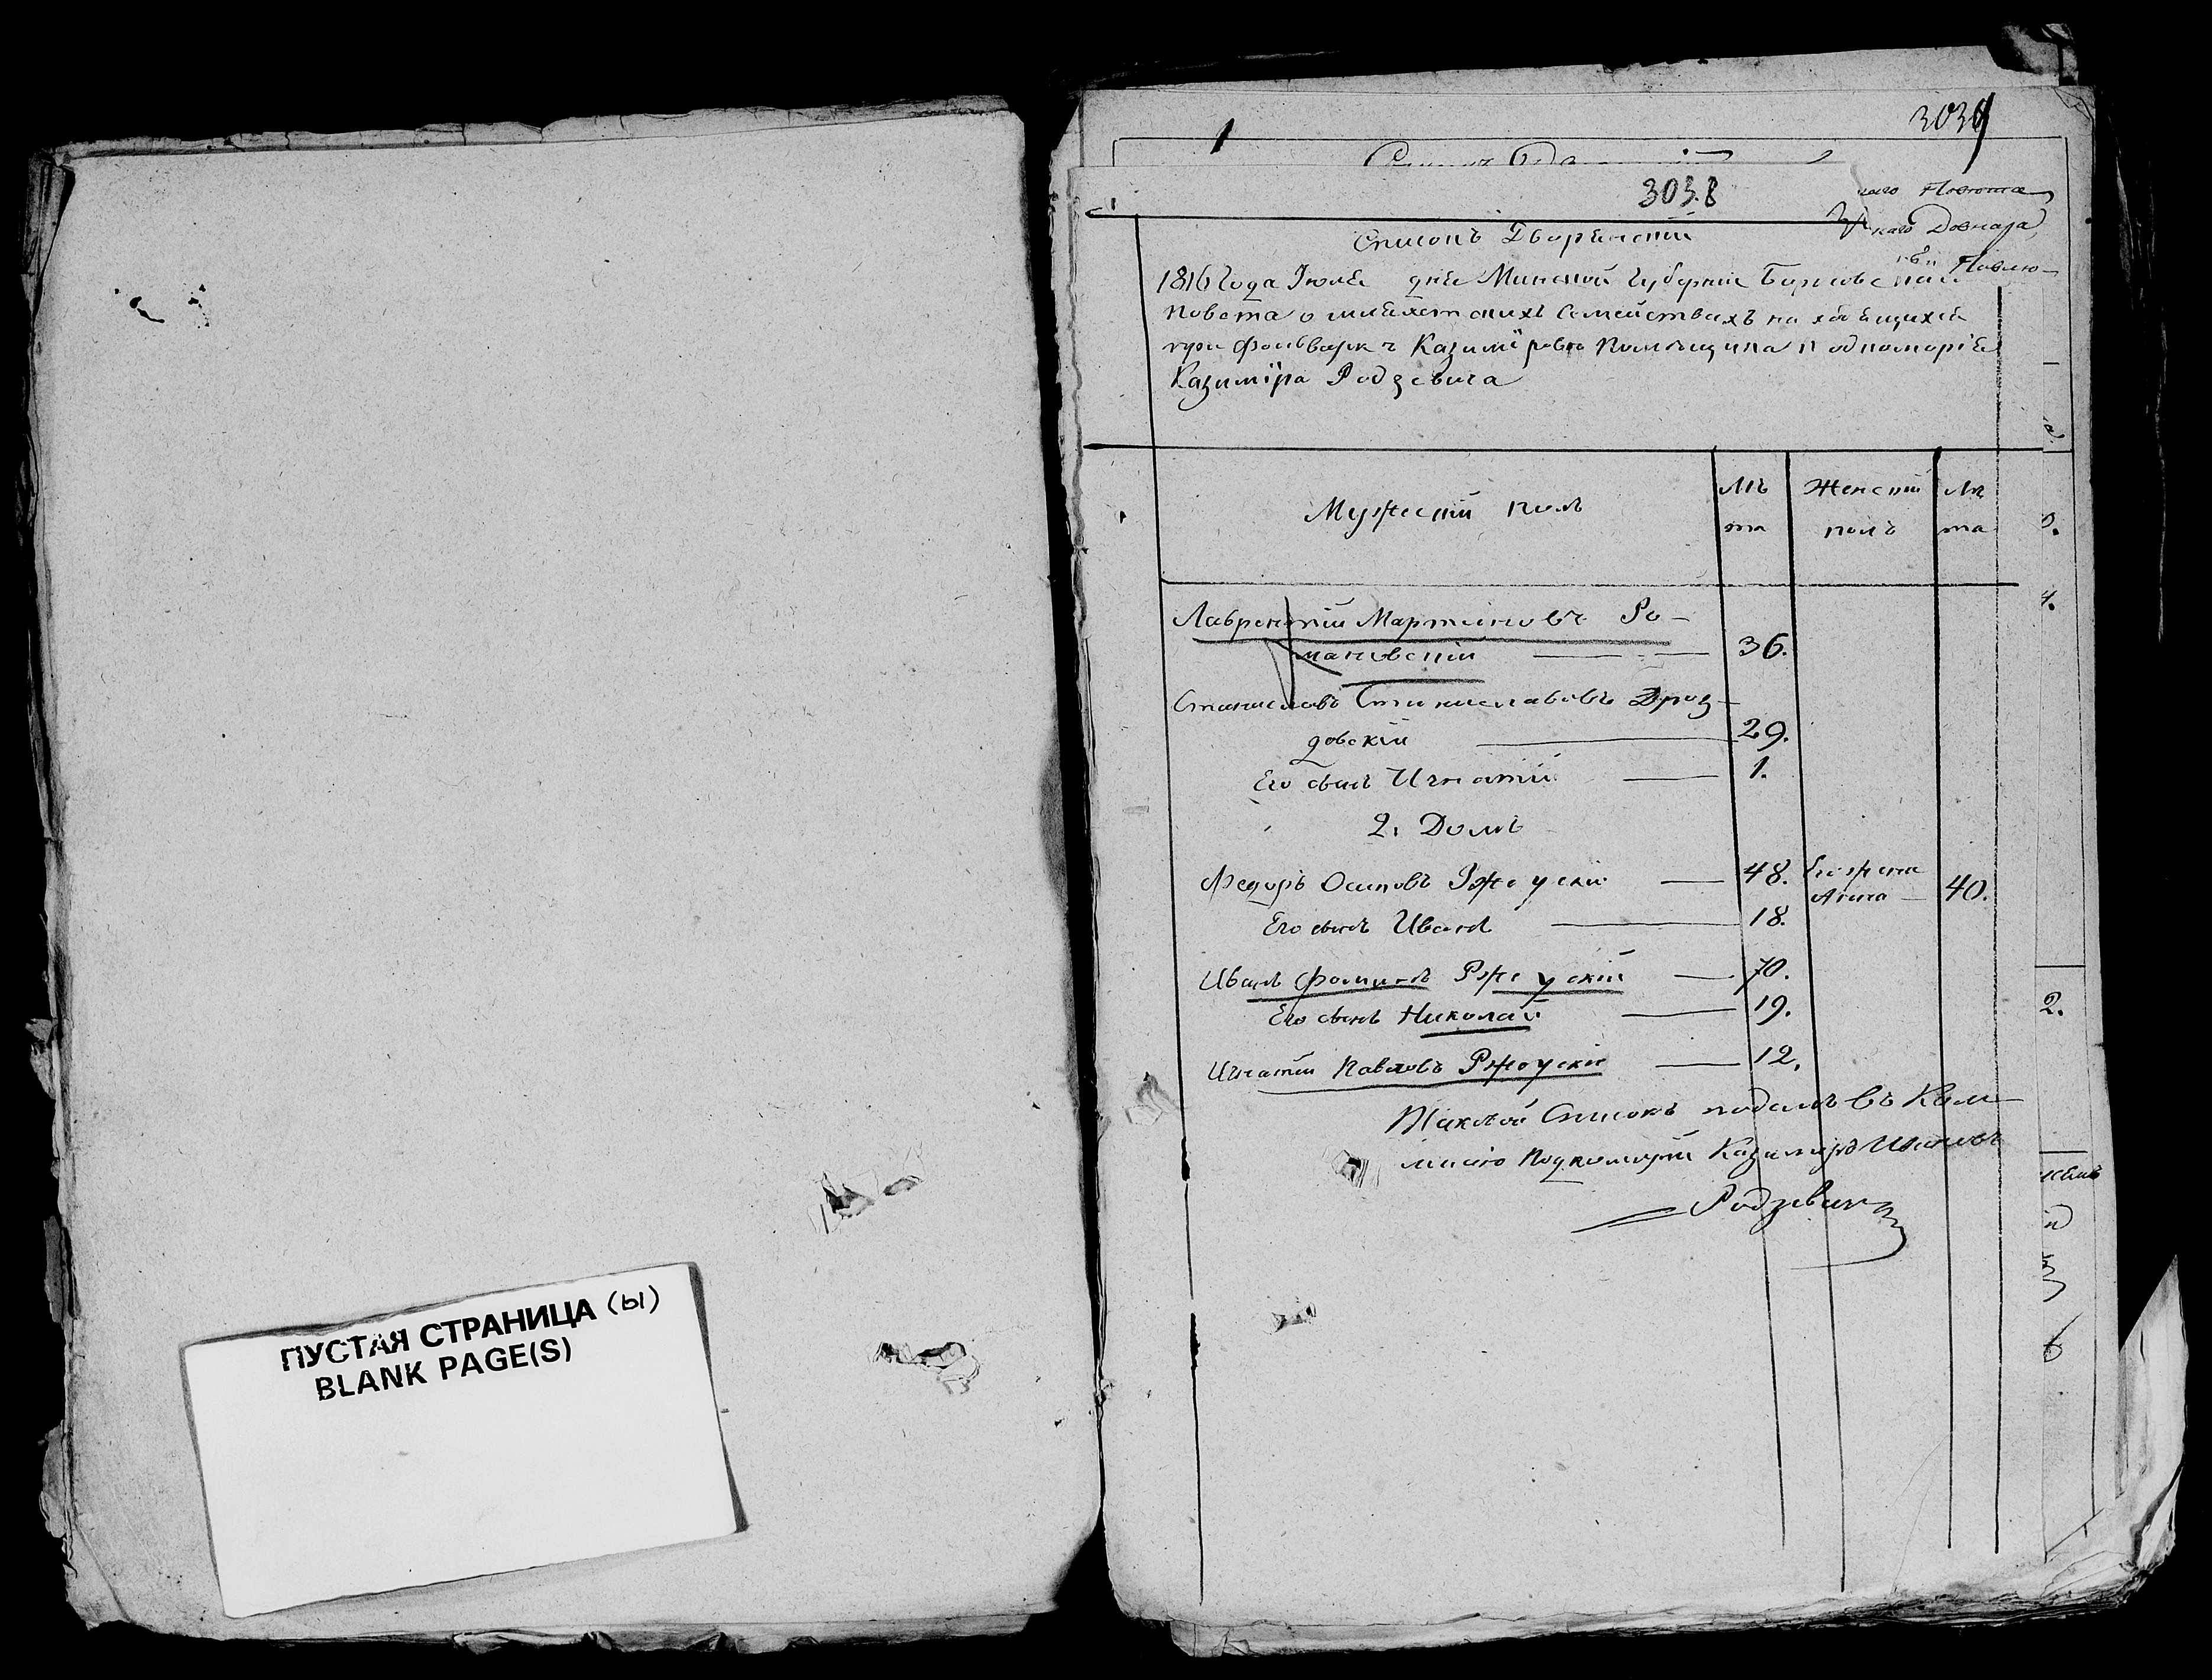 ПУСТАЯ СТРАНИЦА (ы)
BLANK PAGE(S)
3039
3038
каго Повета
Довнара
Павлю-
Списокъ Дворянскiй
1816 Года Iюля дня Минской Губернiи Борисовскаго
Повета о шляхетскихъ Семействахъ находящихся
при фольварке Казимiрово Подкоморiя
Казимiра Родзевича
Мужескiй полъ
Лѣ
та
Женскiй
полъ
Лѣ
та
Лаврентiй Мартиновъ Ро-
мановскiй 36.
Станиславъ Станиславовъ Дроз-
довскiй 29.
Его сынъ Игнатiй 1.
2. Домъ
Федоръ Осиповъ Ржеускiй 48. Его жена
Анна 40.
Его сынъ Иванъ 18.
Иванъ Фоминъ Ржеускiй 70.
Его сынъ Николай 19.
Игнатiй Павловъ Ржеускiй 12.
Таковой Списокъ подалъ въ Ком-
мисiю Подкоморiй Казимиръ Ивановъ
Родзевичъ
2.